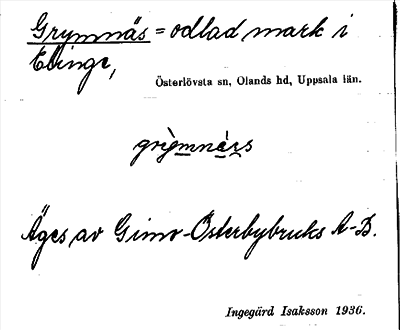 Grymnäs = odlad mark i
Ebinge,
Österlövsta sn, Olands hd, Uppsala län.
grỳmnä́s
Äges av Gimo-Österbybruks A-B.
Ingegärd Isaksson 1936.